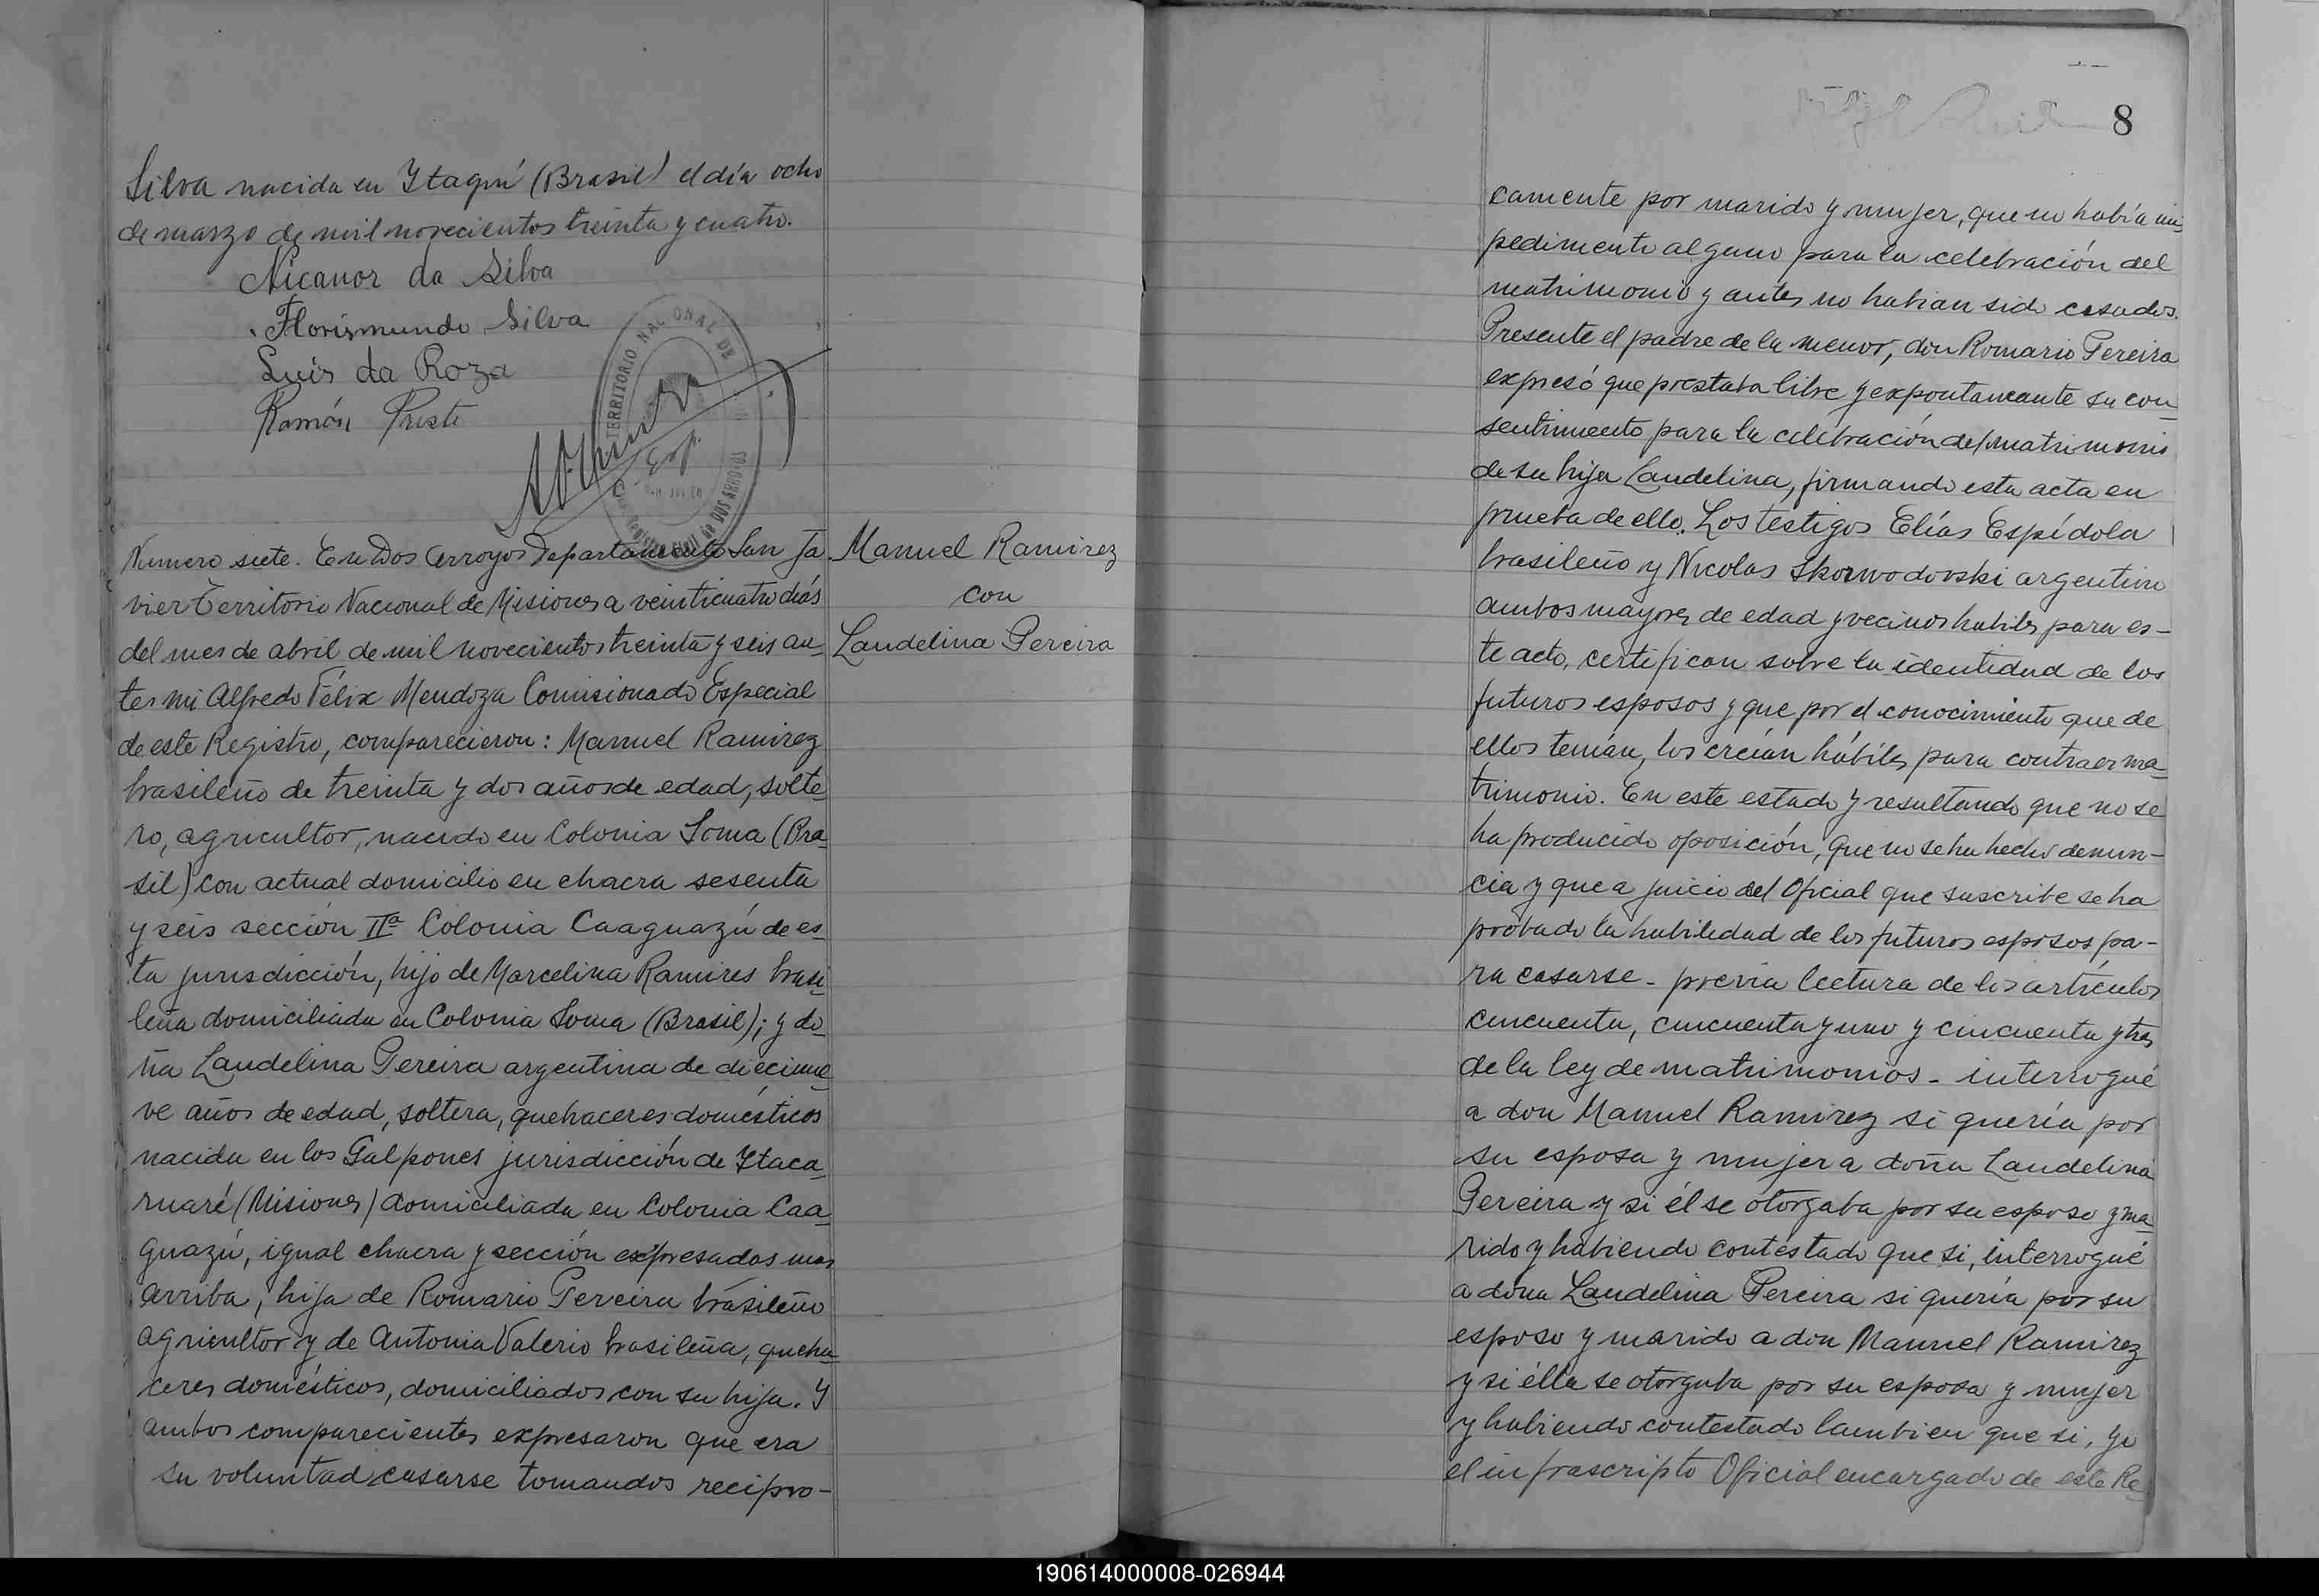 Silva nacida en Itaquí (Brasil) el día ocho
de marzo de mil novecientos treinta y cuatro.
Nicanor da Silva
Florismundo Silva
Luis da Roza
Ramón Preste
TERRITORIO NACIONAL DE
DOS ARROYOS
Numero siete. En Dos Arroyos Departamento San Ja
vier Territorio Nacional de Misiones a veinticuatro días
del mes de abril de mil novecientos treinta y seis an
tes mi Alfredo Félix Mendoza Comisionado Especial
de este Registro, comparecieron: Manuel Ramirez
brasileño de treinta y dos años de edad, solte
ro, agricultor, nacido en Colonia Soma (Bra
sil) con actual domicilio en chacra sesenta
y seis sección IIª Colonia Caaguazú de es
ta jurisdicción, hijo de Marcelina Ramires brasi
leña domiciliada en Colonia Soma (Brasil); y do
ña Laudelina Pereira argentina de diecinue
ve años de edad, soltera, quehaceres domésticos
nacida en los Galpones jurisdicción de Itaca
ruaré (Misiones) domiciliada en Colonia Caa
guazú, igual chacra y sección expresadas mas
arriba, hija de Romario Pereira brasileño
agricultor y de Antonia Valerio brasileña, queha
ceres domésticos, domiciliados con su hija. Y
ambos comparecientes expresaron que era
su voluntad casarse tomandos recipro-
Manuel Ramirez
con
Laudelina Pereira
8
camente por marido y mujer, que no había im
pedimento alguno para la celebración del
matrimonio y antes no habian sido casados.
Presente el padre de la menor, don Romario Pereira
expresó que prestaba libre y expontaneante su con
sentimiento para la celebración del matrimonio
de su hija Laudelina, firmando esta acta en
prueba de ello. Los testigos Elías Espídola
brasileño y Nicolas Skorwodovski argentino
ambos mayores de edad y vecinos habiles para es-
te acto, certifican sobre la identidad de los
futuros esposos y que por el conocimiento que de
ellos tenían, los creían hábiles para contraer ma
trimonio. En este estado y resultando que no se
ha producido oposición, que no se ha hecho denun-
cia y que a juicio del Oficial que suscribe se ha
probado la habilidad de los futuros esposos pa-
ra casarse - previa lectura de los artículos
cincuenta, cincuenta y uno y cincuenta y tres
de la ley de matrimonios - interrogué
a don Manuel Ramirez si quería por
su esposa y mujer a doña Laudelina
Pereira y si él se otorgaba por su esposo y ma
rido y habiendo contestado que si, interrogué
a doña Laudelina Pereira si quería por su
esposo y marido a don Manuel Ramirez
y si élla se otorgaba por su esposa y mujer
y habiendo contestado tambien que si, yo
el infrascripto Oficial encargado de este Re
190614000008-026944